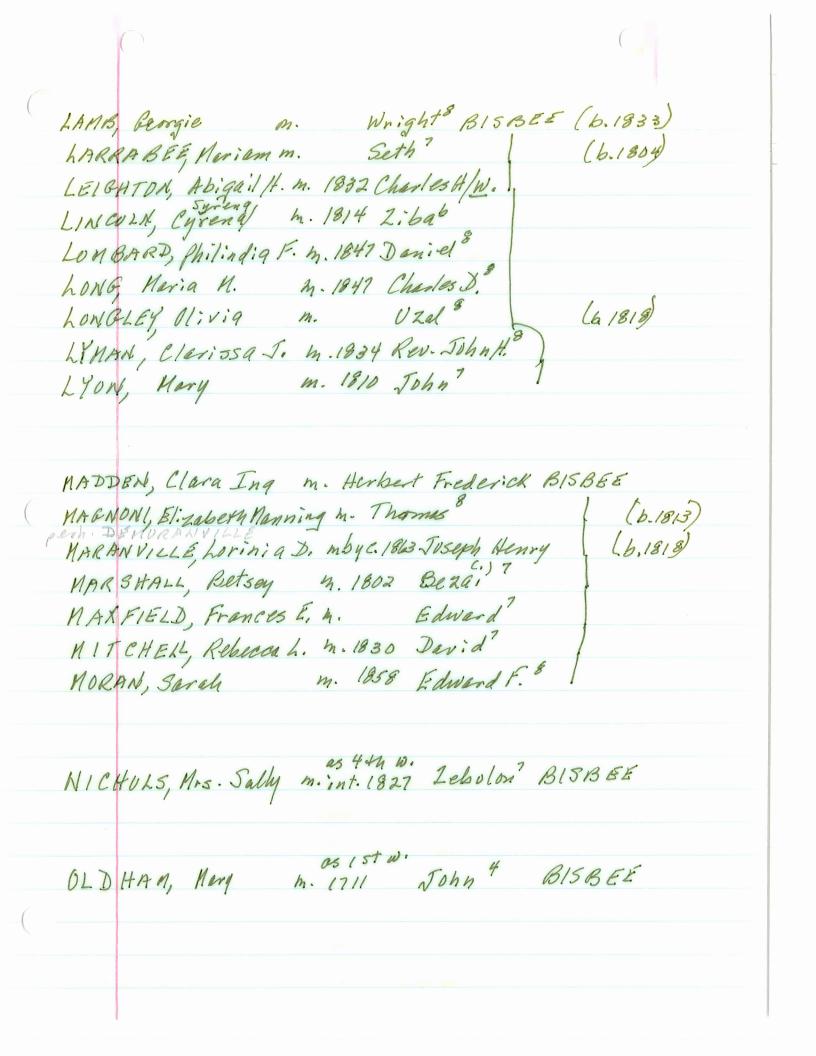 LAMB, Georgie m. Wright⁸ BISBEE (b.1833)
LARRABEE, Meriam m. Seth⁷ (b.1804)
LEIGHTON, Abigail H. m. 1832 Charles H/W.
Syrena
LINCOLN, Cyrena/ m. 1814 Ziba⁶
LOMBARD, Philindia F. m. 1847 Daniel⁸
LONG, Maria M. m. 1847 Charles D.⁸
LONGLEY, Olivia m. Uzal⁸ (b 1818)
LYMAN, Clarissa J. m. 1834 Rev. John H.⁸
LYON, Mary m. 1810 John⁷
MADDEN, Clara Ina m. Herbert Frederick BISBEE
MAGNONI, Elizabeth Manning m. Thomas⁸ (b.1813)
perh. DEMORANVILLE
MARANVILLE, Lorinia D. m by c. 1863 Joseph Henry (b.1818)
MARSHALL, Betsey m. 1802 Bezai(.)⁷
MAXFIELD, Frances E. m. Edward⁷
MITCHELL, Rebecca L. m. 1830 David⁷
MORAN, Sarah m. 1858 Edward F.⁸
as 4th w.
NICHOLS, Mrs. Sally m. int. 1827 Zebulon⁷ BISBEE
as 1st w.
OLDHAM, Mary m. 1711 John⁴ BISBEE